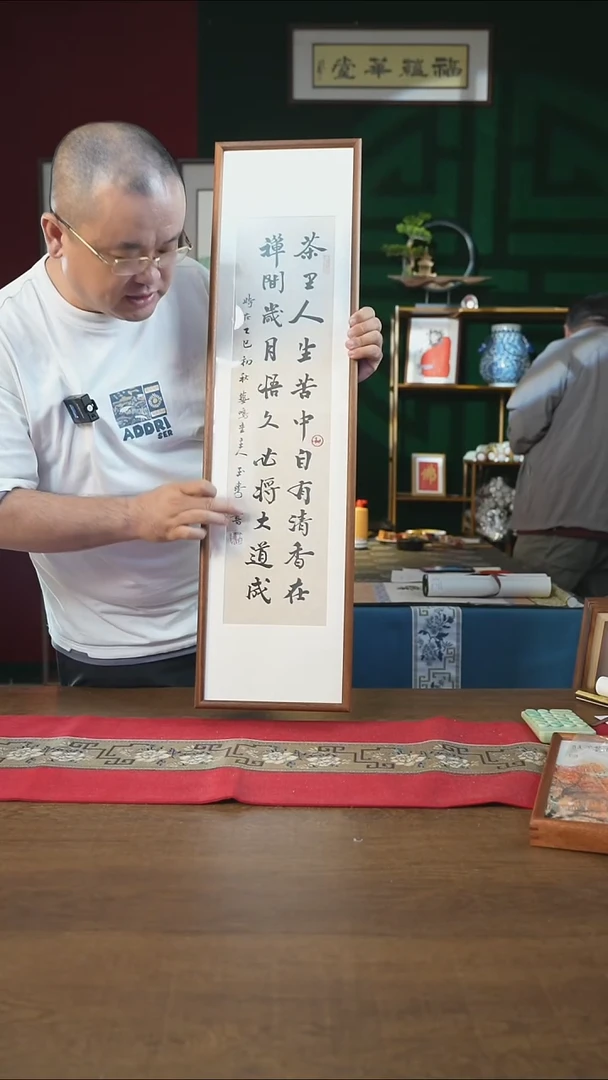 福蘊華堂
茶里人生苦中自有清香在
禪間歲月悟久必將大道成
時在乙巳初秋主人玉書
ADDRI
SER